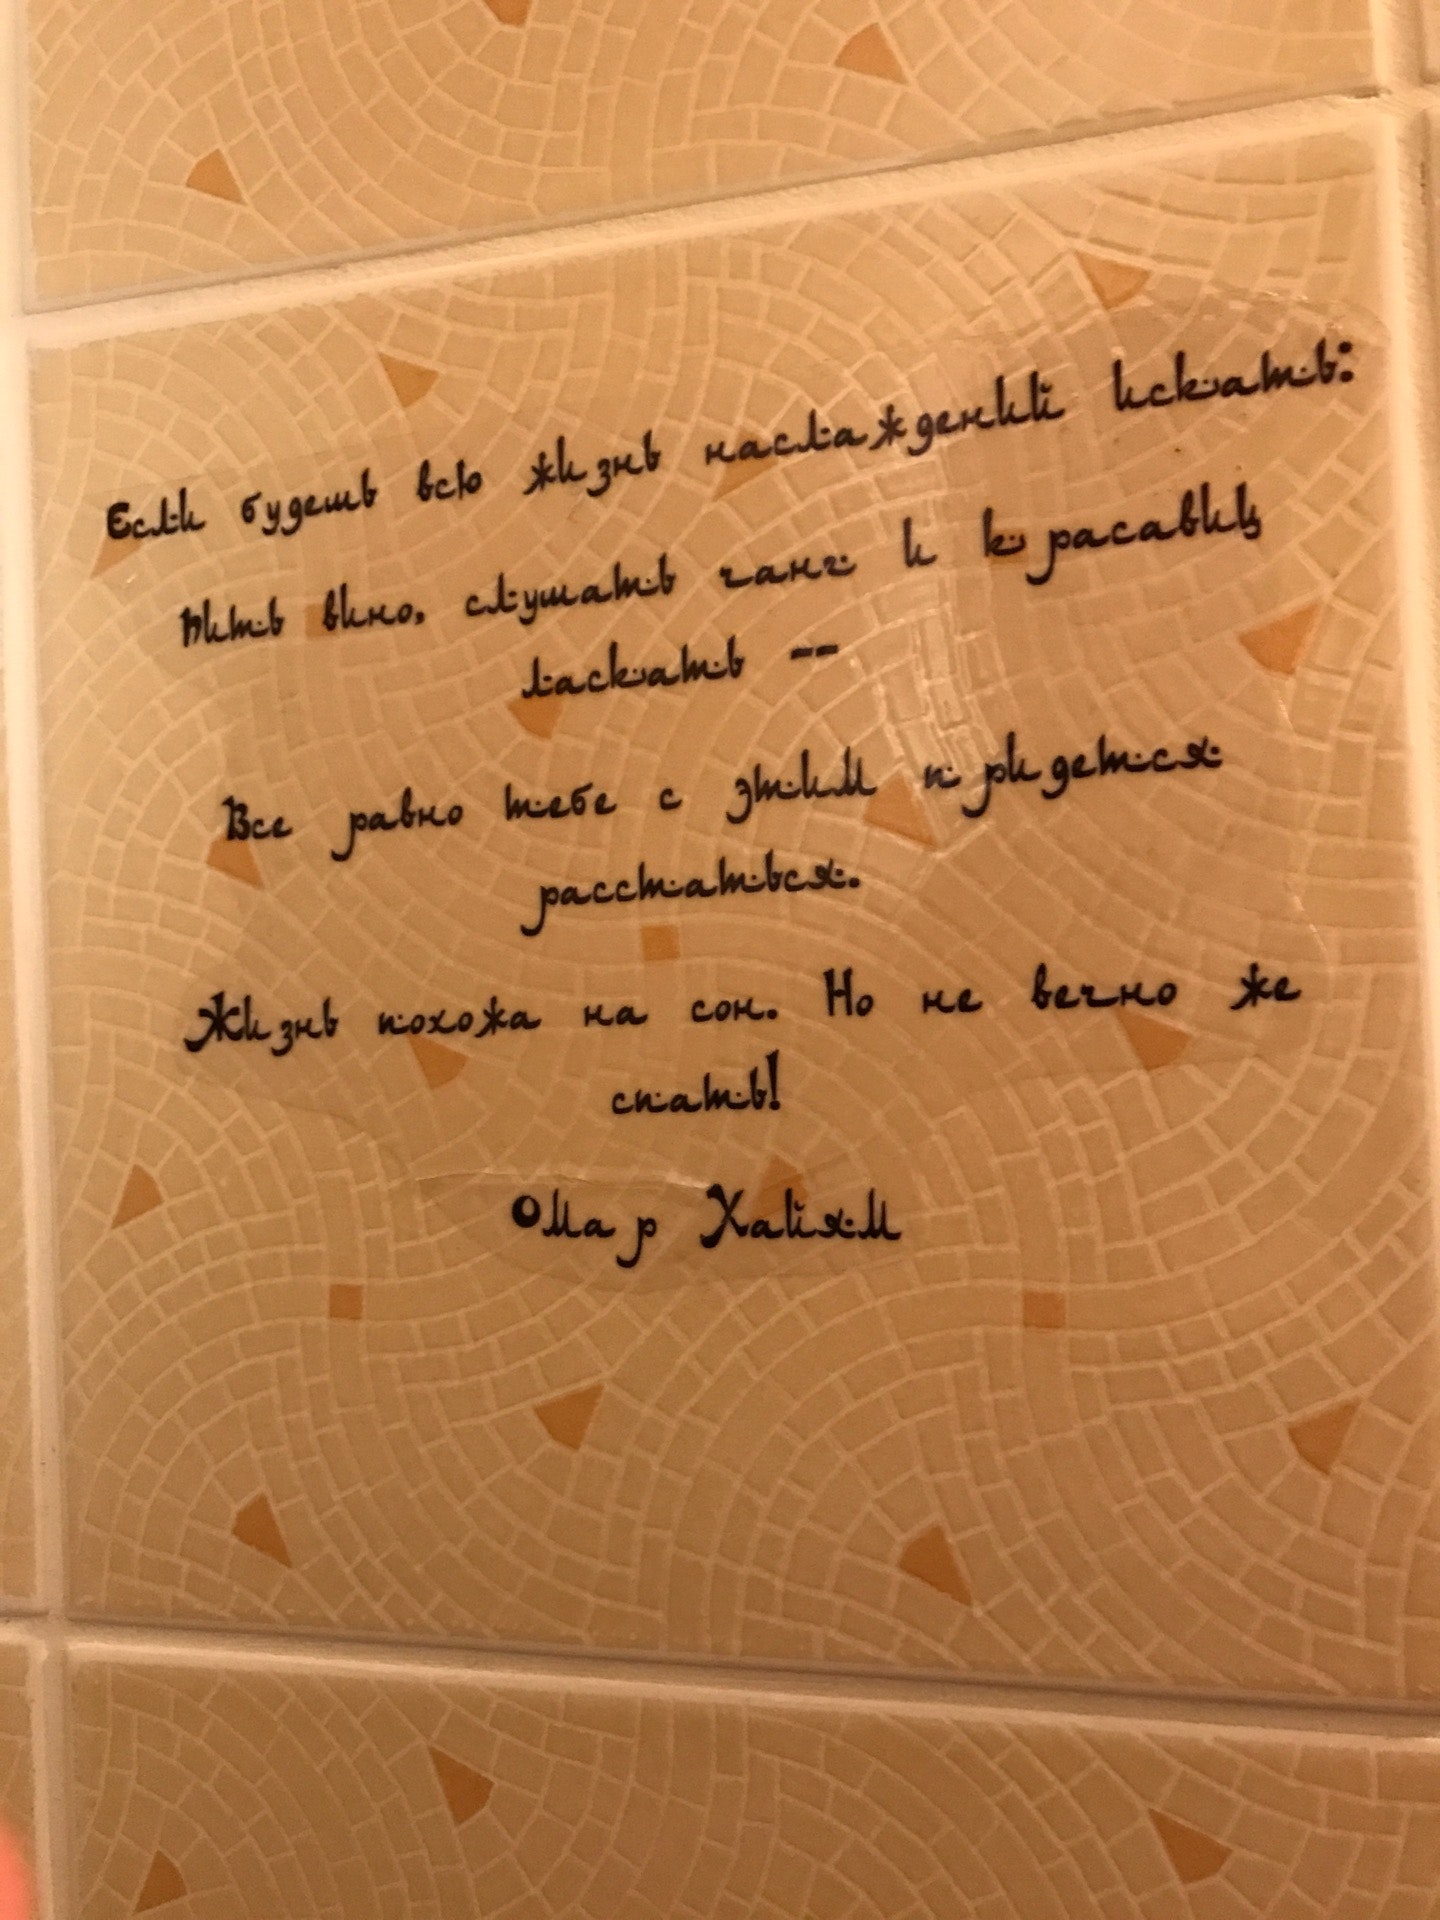 Если будешь всю жизнь наслаждений искать:
Пить вино, слушать чанг и красавиц
ласкать --
Все равно тебе с этим придется
расстаться.
Жизнь похожа на сон. Но не вечно же
спать!
Омар Хайям